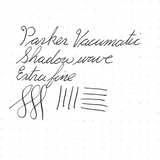 Parker Vacumatic
Shadow wave
Extra fine